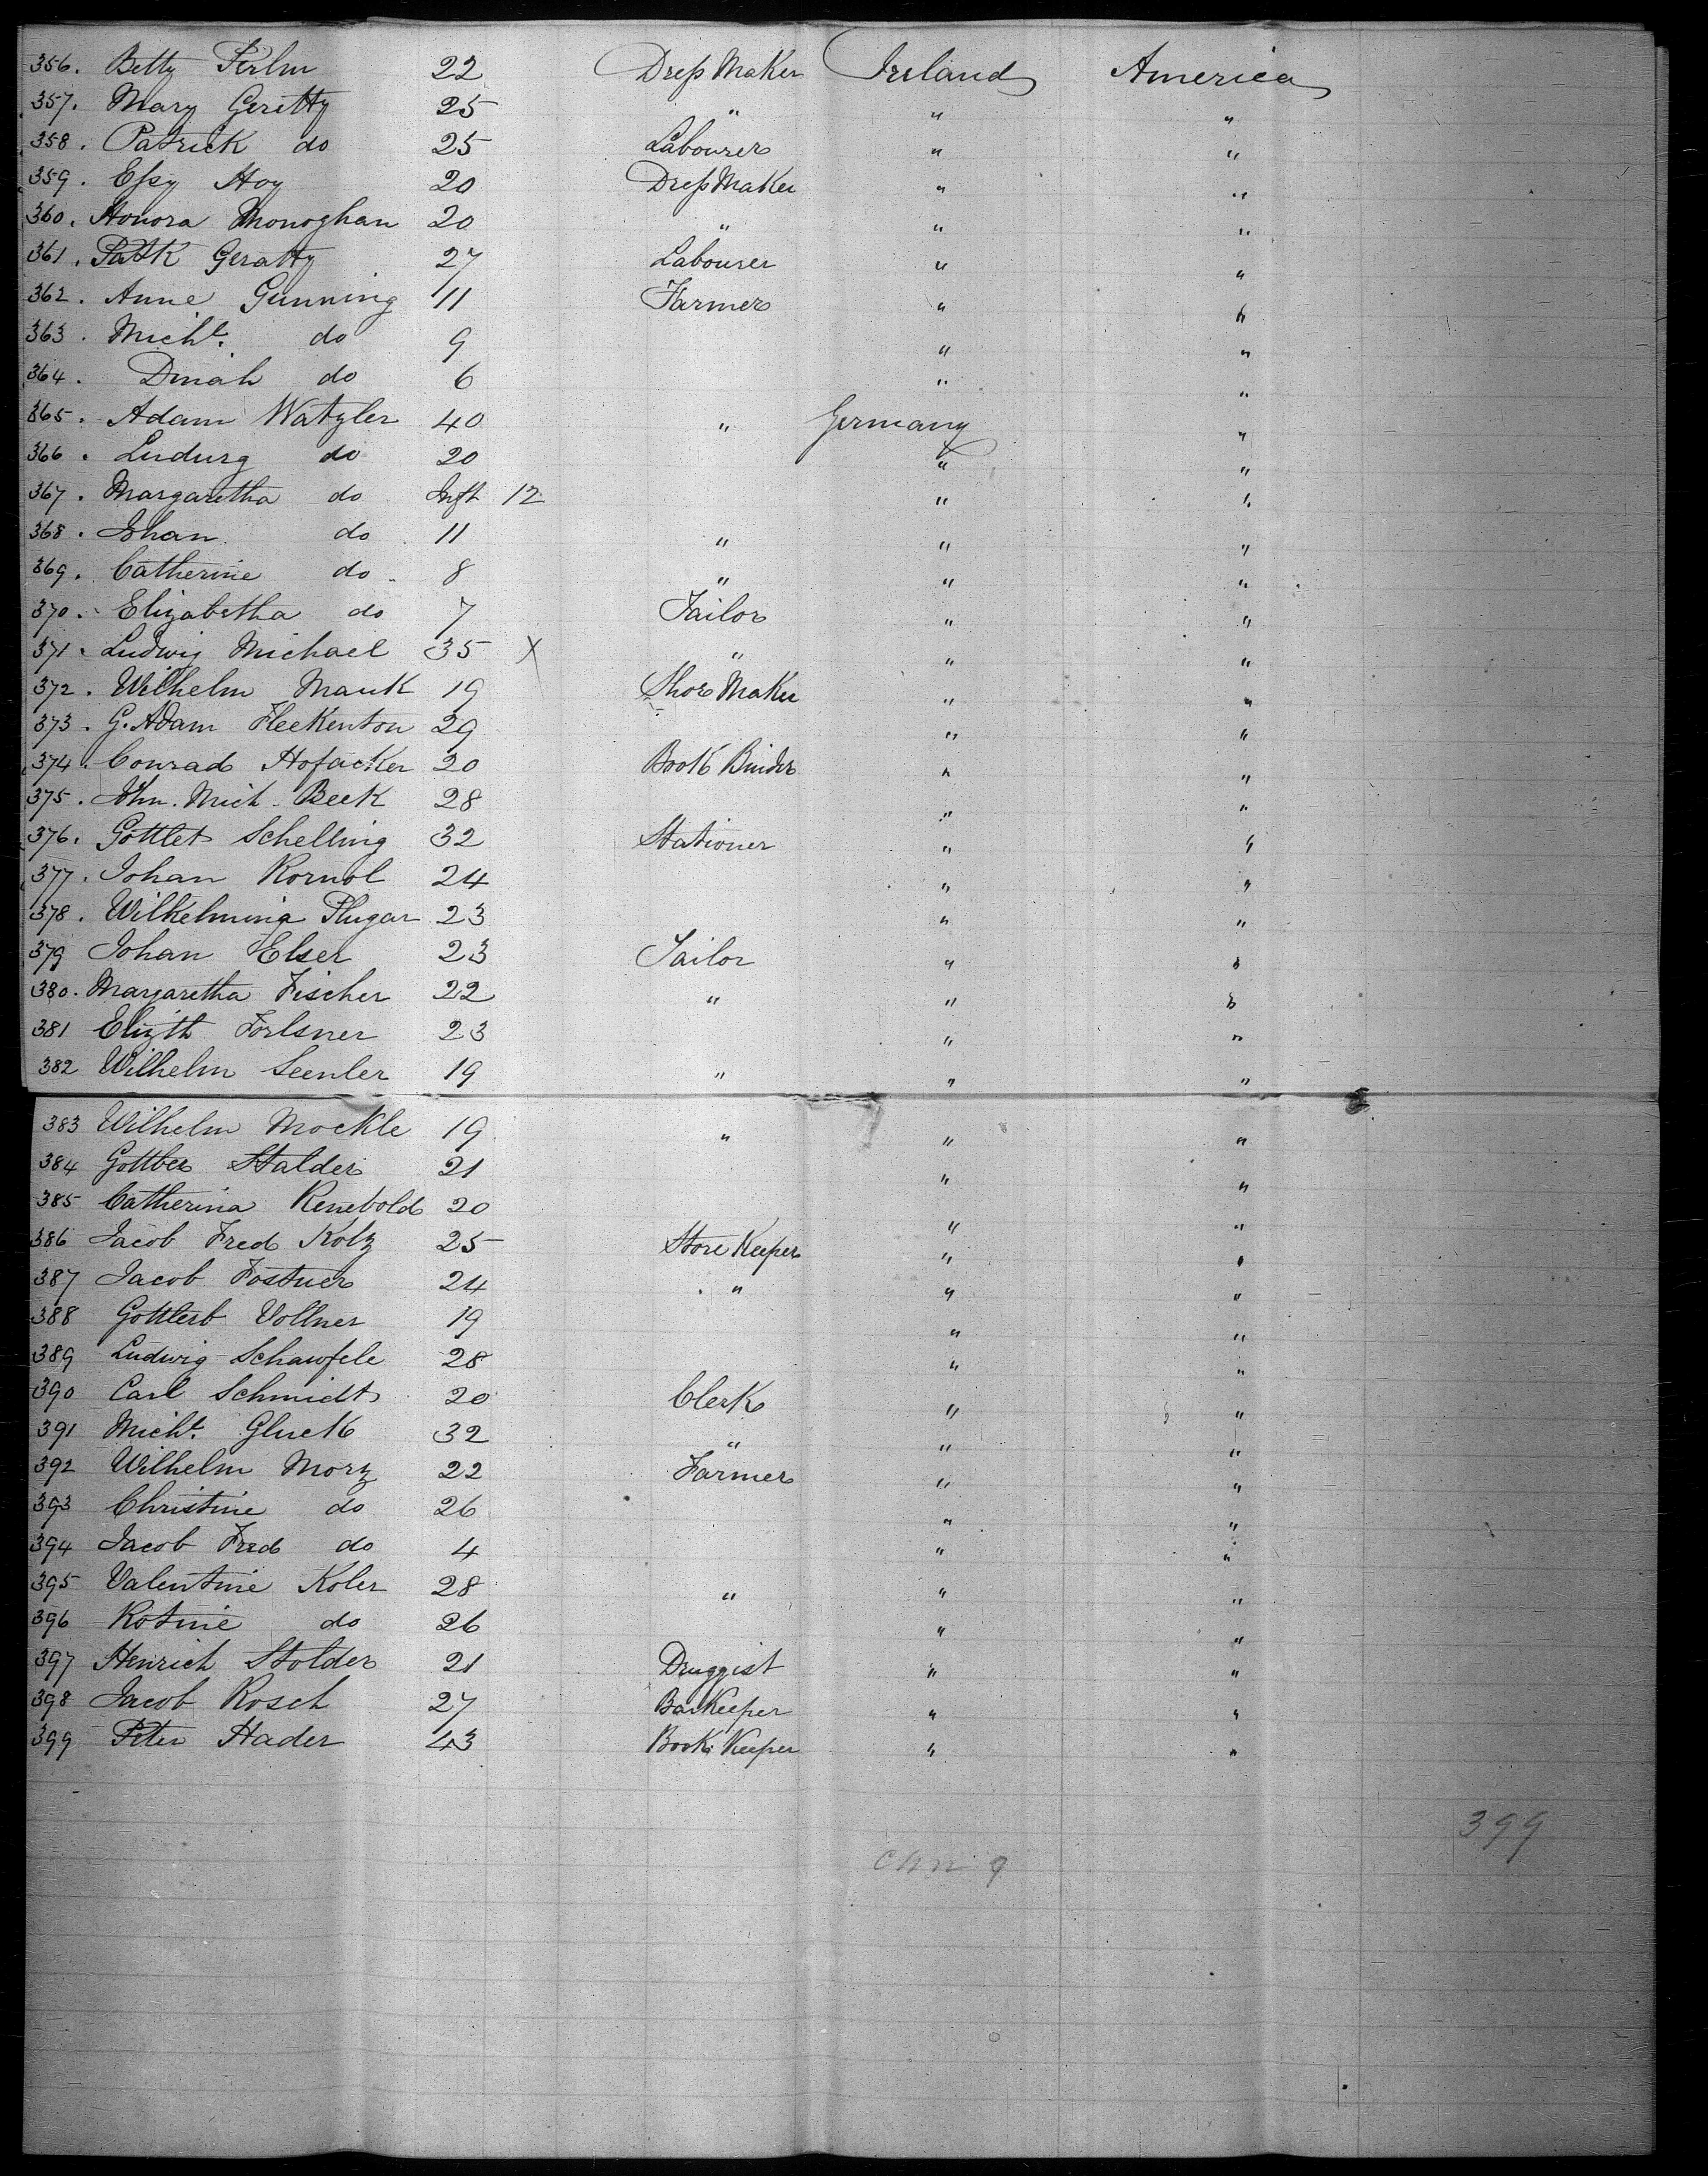 356. Betty Perlm 22 Dress Maker Ireland America
357. Mary Geritty 25 " " "
358. Patrick do 25 Labourer " "
359. Essy Hoy 20 Dress Maker " "
360. Honora Monoghan 20 " " "
361. Patk Geratty 27 Labourer " "
362. Anne Gunning 11 Farmer " "
363. Michl. do 9 " "
364. Dinah do 6 " "
365. Adam Watzler 40 " Germany "
366. Ludurg do 20 " "
367. Margaretha do Inft 12 " "
368. Johan do 11 " " "
369. Catherine do 8 " " "
370. Elizabetha do 7 Tailor " "
371. Ludwig Michael 35 X " " "
372. Wilhelm Mauk 19 Shoe Maker " "
373. G. Adam Fleckenton 29 " "
374. Conrad Hofacker 20 Book Binder " "
375. John. Mich. Beek 28 " "
376. Gottlet Schelling 32 Stationer " "
377. Johan Kornol 24 " "
378. Wilhelmina Plugar 23 " "
379 Johan Elser 23 Tailor " "
380. Margaretha Fischer 22 " " "
381 Elizth Forlsner 23 " "
382 Wilhelm Seenler 19 " " "
383 Wilhelm Mockle 19 " " "
384 Gottber Stalder 21 " "
385 Catherina Renebold 20 " "
386 Jacob Fred Kolz 25 Store Keeper " "
387 Jacob Fostner 24 " " "
388 Gottlerb Vollner 19 " "
389 Ludwig Schawfele 28 " "
390 Carl Schmidt 20 Clerk " "
391 Michl. Gluck 32 " " "
392 Wilhelm Morz 22 Farmer " "
393 Christine do 26 " "
394 Jacob Fred do 4 " "
395 Valentine Koler 28 " " "
396 Kotine do 26 " "
397 Henrich Stolder 21 Druggist " "
398 Jacob Rosch 27 Bar Keeper " "
399 Peter Hader 43 Book Keeper " "
399
Chn 9